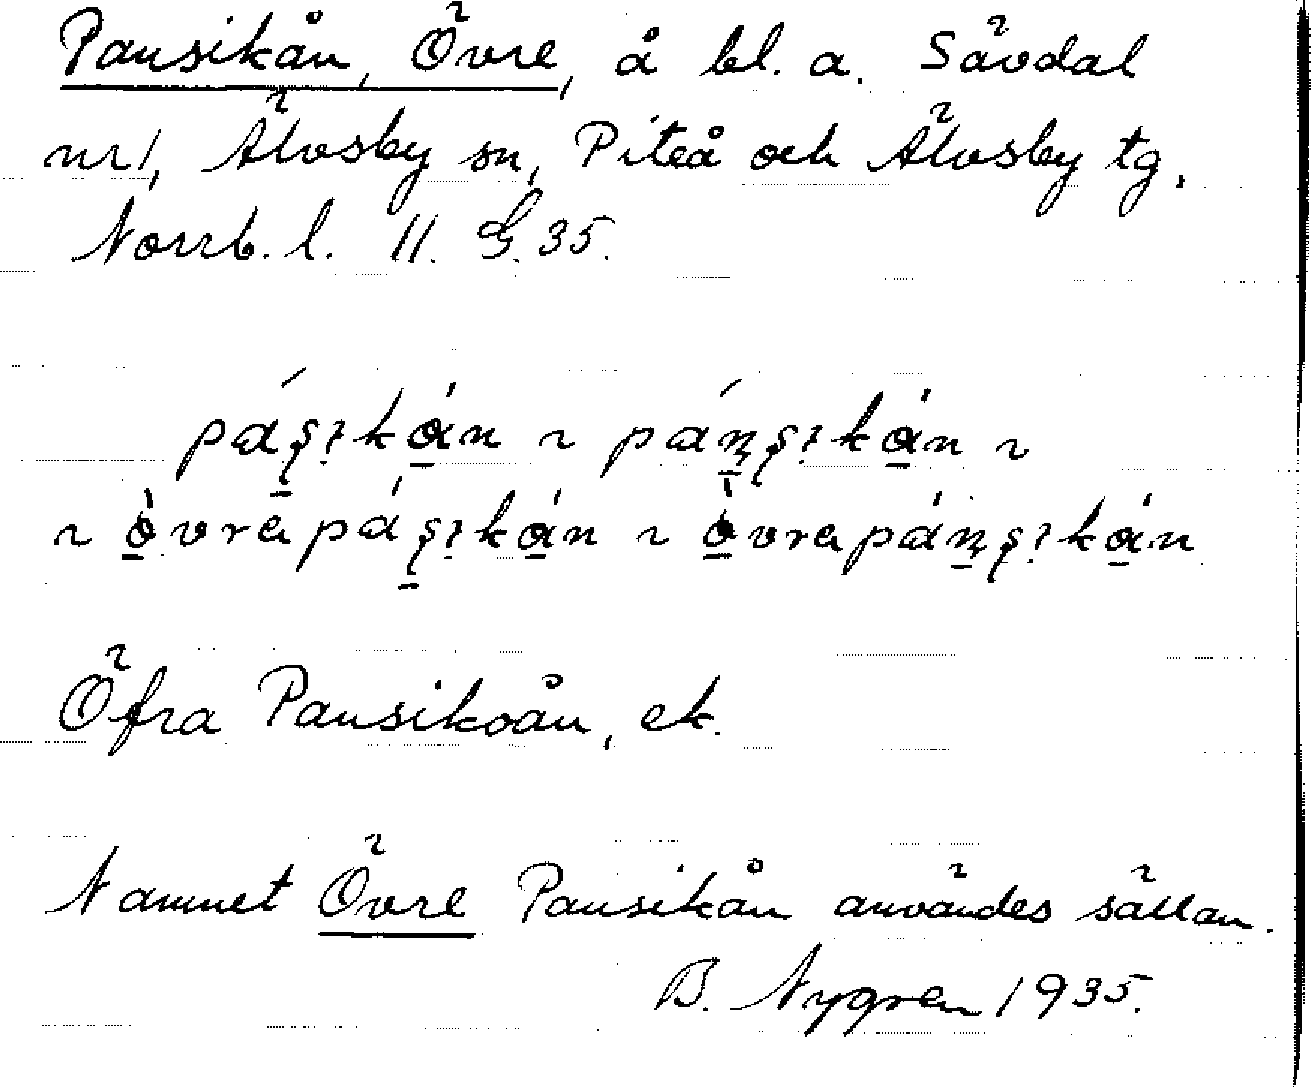 Pausikån, Övre, å bl. a. Sävdal
nr 1, Älvsby sn, Piteå och Älvsby tg,
Norrb. l. 11. G. 35.
Öfra Pausikoån, ek.
Namnet Övre Pausikån användes sällan.
B. Nygren 1935.